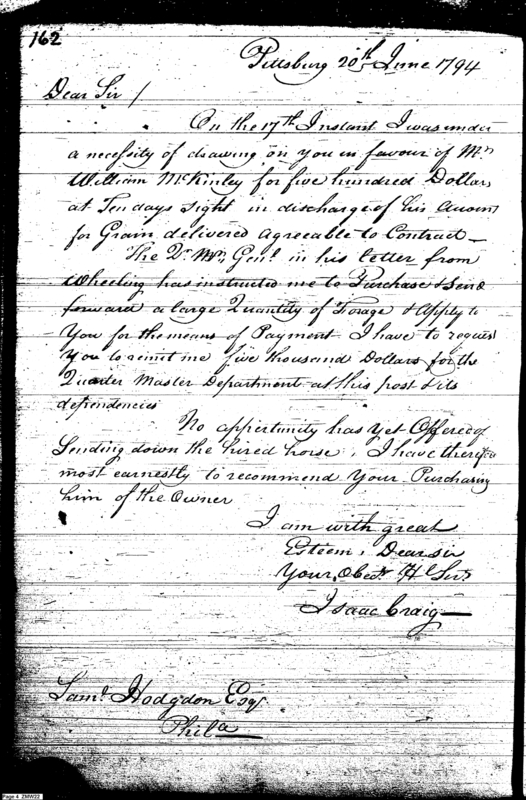 162
Pittsburg 20th June 1794
Dear Sir /
On the 17th Instant I was under
a necessity of drawing on you in favour of Mr
William McKinley for five hundred Dollars
at Ten days sight in discharge of his Accom
for Grain delivered agreeable to Contract —
The Qr Mr Genl in his letter from
Wheeling has instructed me to Purchase & send
forward a large Quantity of Forage & Apply to
You for the means of Payment I have to request
You to remit me five thousand Dollars for the
Quarter Master Department at this post & its
dependencies
No oppertunity has yet Offered of
Sending down the hired horse, I have therefore
most earnestly to recommend Your Purchasing
him of the Owner
I am with great
Esteem, Dear sir
Your Obedt Hl Servt
Isaac Craig —
Saml Hodgdon Esqr
Phila
Page 4 ZMW22